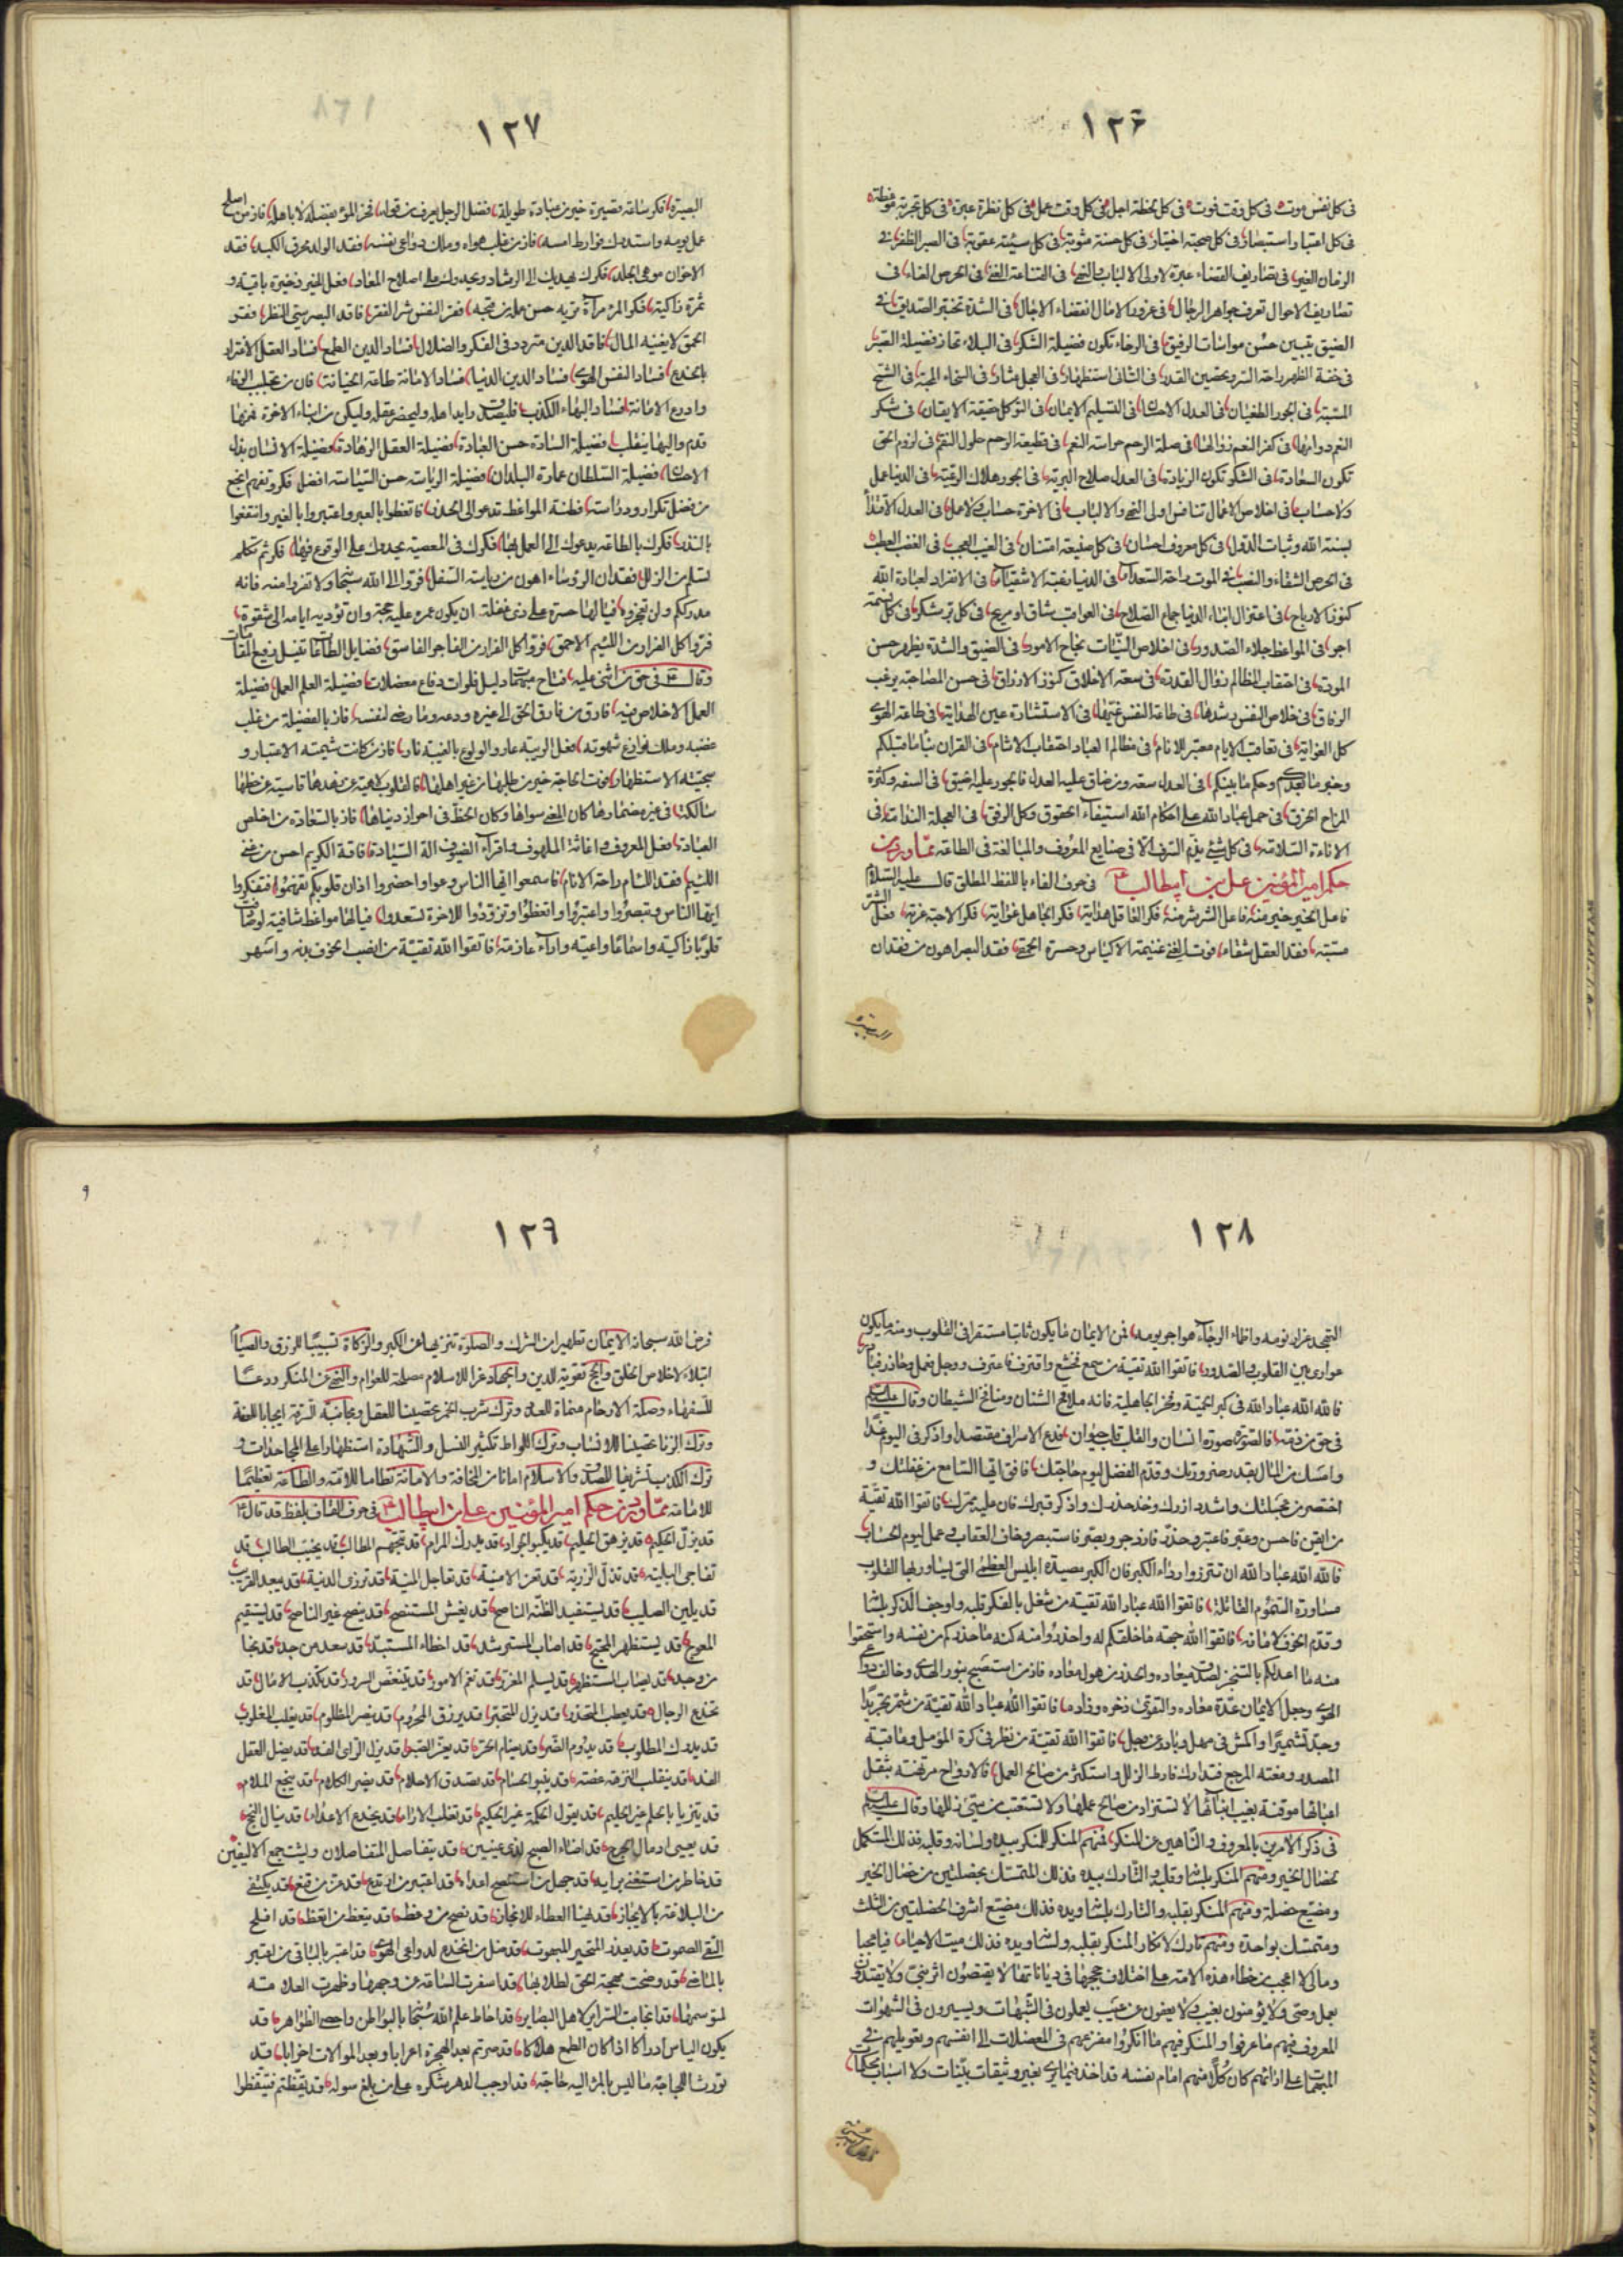 ١٢٦
فى كل نفس موت فى كل وقت فوت فى كل لحظة اجل فى كل وقت عمل فى كل نظرة عبرة فى كل تجربة موعظة
فى كل اعتبار استبصار فى كل صحبة اختيار فى كل حسنة مثوبة فى كل سيئة عقوبة فى الصبر الظفر فى
الزمان الغير فى تصاريف القضاء عبرة لاولى الالباب والنهى فى القناعة الغنى فى الحرص العناء فى
تصاريف الاحوال تعرف جواهر الرجال فى غرور الامال انقضاء الاجال فى الشدة تختبر الصديق فى
الضيق يتبين حسن مواسات الرفيق فى الرخاء تكون فضيلة الشكر فى البلاء تحاز فضيلة الصبر
فى خفة الظهر راحة السر وتحصين القدر فى التانى استظهار فى العجل عثار فى السخاء المحبة فى الشح
المسبة فى الجور الطغيان فى العدل الاحسان فى التسليم الايمان فى التوكل حقيقة الايقان فى شكر
النعم دوامها فى كفر النعم زوالها فى صلة الرحم حراسة النعم فى قطيعة الرحم حلول النقم فى لزوم الحق
تكون السعادة فى الشكر تكون الزيادة فى العدل صلاح البرية فى الجور هلاك الرعية فى الدنيا عمل
ولا حساب فى اخلاص الاعمال تنافس اولى النهى والالباب فى الاخرة حساب ولا عمل فى العدل الاقتداء
بسنة الله وثبات الدول فى كل معروف احسان فى كل صنيعة امتنان فى الغضب العطب
فى الحرص الشقاء والنصب فى الموت راحة السعداء فى الدنيا رغبة الاشقياء فى الانفراد لعبادة الله
كنوز الارباح فى اعتزال ابناء الدنيا جماع الصلاح فى العواقب شاف او مريح فى كل بر شكر فى كل نسمة
اجر فى المواعظ جلاء الصدور فى اخلاص النيات نجاح الامور فى الضيق والشدة يظهر حسن
المودة فى احتقاب المظالم زوال القدرة فى سعة الاخلاق كنوز الارزاق فى حسن المصاحبة يرغب
الرفاق فى خلاص النفس رشدها فى طاعة النفس غيها فى الاستشارة عين الهداية فى طاعة الهوى
كل الغواية فى تعاقب الايام معتبر للانام فى مظالم العباد احتقاب الاثام فى القران نبأ ما قبلكم
وخبر ما بعدكم وحكم ما بينكم فى العدل سعة ومن ضاق عليه العدل فالجور عليه اضيق فى السفه وكثرة
المزاح الخرق فى حمل عباد الله على احكام الله استيفاء الحقوق وكل الرفق فى العجلة الندامة فى
الاناءة السلامة فى كل شيئ يذم السرف الا فى صنايع المعروف والمبالغة فى الطاعة مما ورد من
حكم امير المؤمنين على بن ابيطالب فى حرف الفاء باللفظ المطلق قال عليه السلام
فاعل الخير خير منه فاعل الشر شر منه فكر العاقل هداية فكر الجاهل غواية فعل الشر
مسبة فقد العقل شقاء فوت الغنى غنيمة الاكياس وحسرة الحمقى فقد البصر اهون من فقدان
البصيرة
١٢٧
البصيرة فكر ساعة قصيرة خير من عبادة طويلة فضل الرجل يعرف من قوله فخر المرء بفضله لا باهله فاز من اصلح
عمل يومه واستدرك فوارط امسه فاز من غلب هواه وملك دواعى نفسه فقد الولد محرق الكبد فقد
الاخوان موهى الجلد فكرك يهديك الى الرشاد ويحدوك على اصلاح المعاد فعل الخير ذخيرة باقية و
ثمرة زاكية فكر المرء مرآة تريه حسن عمله من قبحه فقر النفس شر الفقر فاقد البصر سيئ النظر فقر
الحمق لا يغنيه المال فاقد الدين متردد فى الفكر والضلال فساد الدين الطمع فساد العقل الاغترار
بالخدع فساد النفس الهوى فساد الدين الدنيا فساد الامانة طاعة الخيانة
فساد البهاء الكذب فليصدق رايد اهله وليحضر عقله وليكن من ابناء الاخرة فمنها
قدم واليها ينقلب فضيلة السادة حسن العبادة فضيلة العقل الزهادة فضيلة الانسان بذل
الاحسان فضيلة السلطان عمارة البلدان فضيلة الرياسة حسن السياسة افضل فكر وتفهم انجع
من فضل تكرار ودراسة فطنة المواعظ تدعو الى الحذر فاتعظوا بالعبر واعتبروا بالغير وانتفعوا
بالنذر فكرك بالطاعة يدعوك الى العمل بها فكرك فى المعصية يحدوك على الوقوع فيها فكر ثم تكلم
تسلم من الزلل فقدان الرؤساء اهون من رياسة السفل فروا الى الله سبحانه ولا تفروا منه فانه
مدرككم ولن تعجزوه فيا لها حسرة على ذى غفلة ان يكون عمره عليه حجة وان تؤديه ايامه الى شقوة
فروا كل الفرار من اللئيم الاحمق فروا كل الفرار من الفاجر الفاسق فضايل الطاعات تنيل رفيع المقامات
وقال فى حق من اثنى عليه فتاح مبهمات دليل فلوات دفاع معضلات فضيلة العلم العمل فضيلة
العمل الاخلاص فيه فارق من فارق الحق الى غيره ودعه وما رضى لنفسه فاز بالفضيلة من غلب
غضبه وملك نوازع شهوته فعل الريبة عار والولوع بالغيبة نار فاز من كانت شيمته الاعتبار و
سجيته الاستظهار فوت الحاجة خير من طلبها من غير اهلها فالقلوب لاهية عن رشدها قاسية عن حظها
سالكة فى غير مضمارها كان المعنى سواها وكان الحظ فى احراز دنياها فاز بالسعادة من اخلص
العبادة فعل المعروف واغاثة الملهوف واقراء الضيوف الة السيادة فاقة الكريم احسن من غنى
اللئيم فقد اللئام راحة الانام فاسمعوا ايها الناس وعوا واحضروا اذان قلوبكم تفهموا فتفكروا
ايها الناس وتبصروا واعتبروا واتعظوا وتزودوا للاخرة تسعدوا فيا لها مواعظ شافية لو صادفت
قلوبا زاكية واسماعا واعية واراء عازمة فاتقوا الله تقية من انصب الخوف بدنه واسهر
١٢٨
التهجد غرار نومه واظماء الرجاء هواجر يومه فمن الايمان ما يكون ثابتا مستقرا فى القلوب ومنه ما يكون
عوارى بين القلوب والصدور فاتقوا الله تقية من سمع فخشع واقترف فاعترف ووجل فعمل وحاذر فبادر
فالله الله عباد الله فى كبر الحمية وفخر الجاهلية فانه ملاقح الشنان ومنافخ الشيطان وقال عليه السلام
فى حق من ذمه فالصورة صورة انسان والقلب قلب حيوان فدع الاسراف مقتصدا واذكر فى اليوم غدا
وامسك من المال بقدر ضرورتك وقدم الفضل ليوم حاجتك فافق ايها السامع من غفلتك و
اختصر من عجلتك واشدد ازرك وخذ حذرك واذكر قبرك فان عليه ممرك فاتقوا الله تقية
من ايقن فاحسن وعبر فاعتبر وحذر فازدجر وبصر فاستبصر وخاف العقاب وعمل ليوم الحساب
فالله الله عباد الله ان تتردوا رداء الكبر فان الكبر مصيدة ابليس العظمى التى يساور بها القلوب
مساورة السموم القاتلة فاتقوا الله عباد الله تقية من شغل بالفكر قلبه واوجف الذكر بلسانه
وقدم الخوف لامانه فاتقوا الله جهة ما خلقكم له واحذروا منه كنه ما حذركم من نفسه واستحقوا
منه ما اعد لكم بالتنجز لصدق ميعاده والحذر من هول معاده فاز من استصبح بنور الهدى وخالف دواعى
الهوى وجعل الايمان عدة معاده والتقوى ذخره وزاده فاتقوا الله عباد الله تقية من شمر تجريدا
وجد تشميرا واكمش فى مهل وبادر عن وجل فاتقوا الله تقية من نظر فى كرة الموئل وعاقبة
المصدر ومغبة المرجع فتدارك فارط الزلل واستكثر من صالح العمل فالارواح مرتهنة بثقل
اعبائها موقنة بغيب انبائها لا تستزاد من صالح عملها ولا تستعتب من سيئ زللها وقال عليه السلام
فى ذكر الامرين بالمعروف والناهين عن المنكر فمنهم المنكر للمنكر بيده ولسانه وقلبه فذلك المستكمل
لخصال الخير ومنهم المنكر بلسانه وقلبه والتارك بيده فذلك المتمسك بخصلتين من خصال الخير
ومضيع خصلة ومنهم المنكر بقلبه والتارك بلسانه ويده فذلك مضيع اشرف الخصلتين من الثلث
ومتمسك بواحدة ومنهم تارك لانكار المنكر بقلبه ولسانه ويده فذلك ميت الاحياء فيا عجبا
ومالى لا اعجب من خطاء هذه الامة على اختلاف حججها فى دياناتها لا يقتصون اثر نبى ولا يقتدون
بعمل وصى ولا يؤمنون بغيب ولا يعفون عن عيب يعملون فى الشبهات ويسيرون فى الشهوات
المعروف فيهم ما عرفوا والمنكر فيهم ما انكروا مفزعهم فى المعضلات الى انفسهم وتعويلهم فى
المبهمات على ارائهم كان كلا منهم امام نفسه قد اخذ فيما يرى بغير وثيقات بينات ولا اسباب محكمات
١٢٩
فرض الله سبحانه الايمان تطهيرا من الشرك والصلوة تنزيها عن الكبر والزكاة تسبيبا للرزق والصيام
ابتلاء لاخلاص الخلق والحج تقوية للدين والجهاد عزا للاسلام مصلحة للعوام والنهى عن المنكر ردعا
للسفهاء وصلة الارحام منماة للعدد وترك شرب الخمر تحصينا للعقل ومجانبة السرقة ايجابا للعفة
وترك الزنا تحصينا للانساب وترك اللواط تكثير النسل والشهادة استظهارا على المجاحدات و
ترك الكذب تشريفا للصدق والاسلام امانا من المخافة والامانة نظاما للامة والطاعة تعظيما
للامامة مما ورد من حكم امير المؤمنين على بن ابيطالب فى حرف القاف بلفظ قد قال
قد يزل الحكيم قد يزهق الحليم قد يكبو الجواد قد يدرك المراد قد تجهم المطالب قد يخيب الطالب قد
تفاجى البلية قد تذل الرزية قد تعز الامنية قد تعاجل المنية قد تزرى الدنية قد يبعد القريب
قد يلين الصليب قد يستفيد الظنة الناصح قد يغش المستنصح قد ينصح غير الناصح قد يستقيم
المعوج قد يستظهر المحتج قد اصاب المسترشد قد اخطاء المستبد قد سعد من جد قد نجا
من وحد قد يصاب المستظهر قد يسلم المغرر قد تعم الامور قد يتنغص السرور قد تكذب الامال قد
تخدع الرجال قد يعطب المتحذر قد يزل المتحير قد يرزق المحروم قد ينصر المظلوم قد يغلب المغلوب
قد يدرك المطلوب قد يدوم الضر قد يضام الحر قد يعز الصبر قد يزل الراى الفذ قد يضل العقل
الفذ قد ينقلب النزهة غصة قد ينبو الحسام قد تصدق الاحلام قد يضر الكلام قد ينجع الملام
قد يتزيا بالحلم غير الحليم قد يقول الحكمة غير الحكيم قد تغلب الاراء قد يخدع الاعداء قد ينال النجح
قد يعيى اندمال الجرح قد اضاء الصبح لذى عينين قد يتفاصل المتفاصلان ويشتجمع الاليفين
قد خاطر من استغنى برايه قد جهل من استنصح اعداءه قد اعتبر من ارتدع قد عز من قنع قد يكتفى
من البلاغة بالايجاز قد يهنا العطاء للانجاز قد نصح من وعظ قد يتعظ من اتعظ قد افلح
التقى الصموت قد يعذر المتحير المبهوت قد ضل من انخدع لدواعى الهوى قد اعتبر بالباقى من اعتبر
بالماضى قد وضحت محجة الحق لطلابها قد اسفرت الساعة عن وجهها وظهرت العلامة
لمتوسمها قد انجابت السراير لاهل البصاير قد احاط علم الله سبحانه بالبواطن واحصى الظواهر قد
يكون الياس ادراكا اذا كان الطمع هلاكا قد صرتم بعد الهجرة اعرابا وبعد الموالات احزابا قد
تورث اللجاجة ما ليس بالمرء اليه حاجة قد اوجب الدهر شكره على من بلغ سوله قد يقظتم فتيقظوا